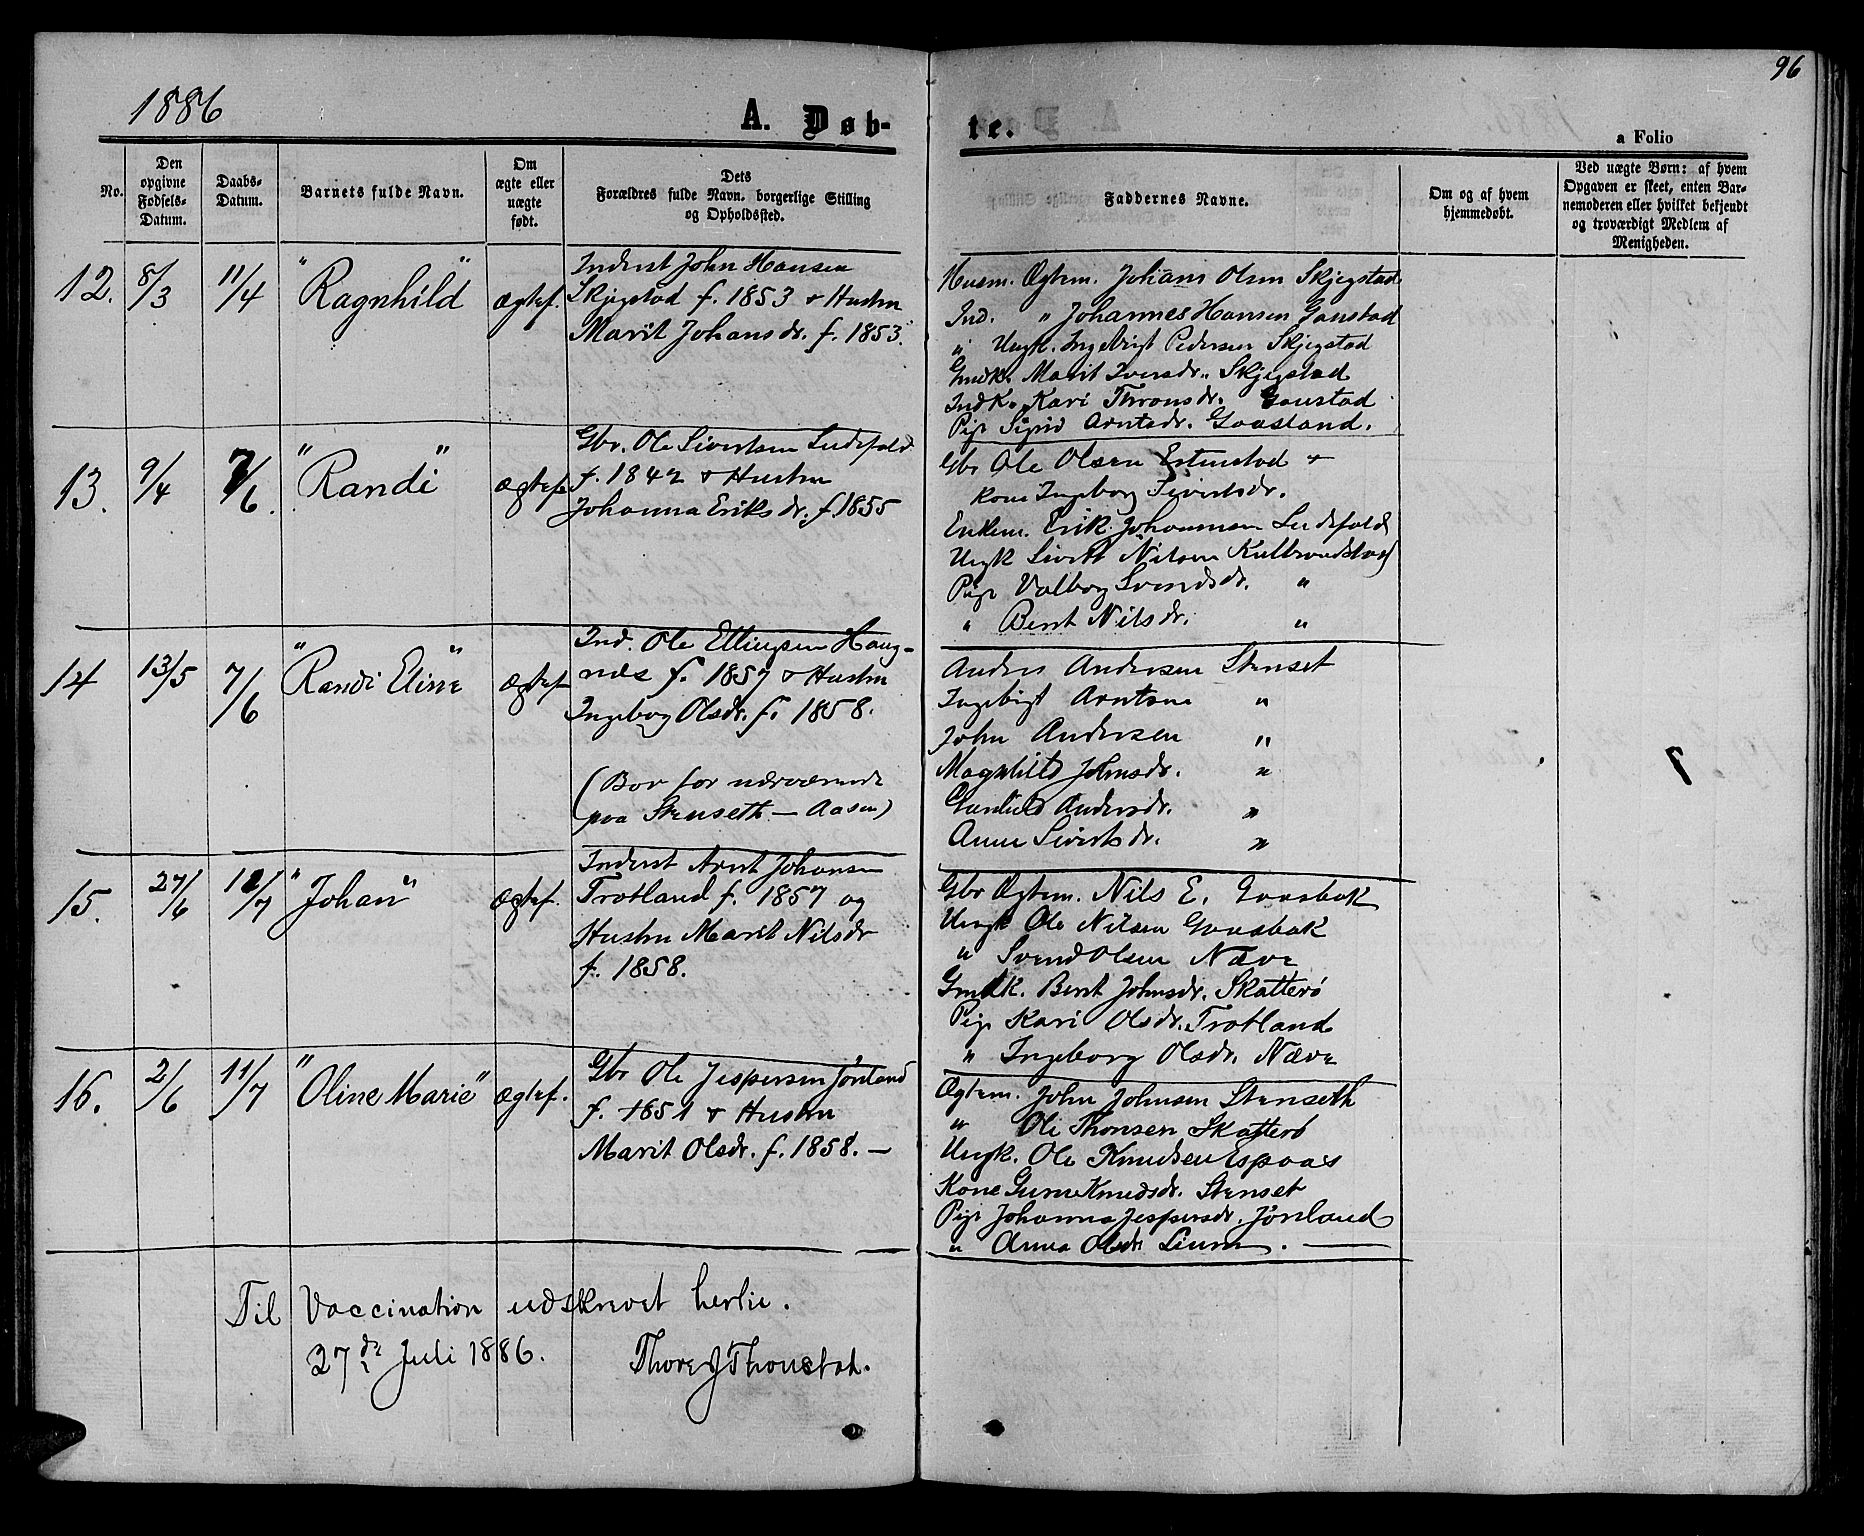 1886
A. Døb-
te.
96
a Folio
No.
Den opgivne Fødsels-Datum.
Daabs-Datum.
Barnets fulde Navn.
Om ægte eller uægte født.
Dets Forældres fulde Navn, borgerlige Stilling og Opholdssted.
Faddernes Navne.
Om og af hvem hjemmedøbt.
Ved uægte Børn: af hvem Opgaven er skeet, enten Barnemoderen eller hvilket bekjendt og troværdigt Medlem af Menigheden.
12. 8/3 11/4 "Ragnhild" ægtef.
Inderst John Hansen
Skjegstad f. 1853 & Hustru
Marit Johansdr. f. 1853.
Husm. Ægtem. Johans Olsen Skjegstad
Ind. " Johannes Hansen Gaustad
" Ungk. Ingebrigt Pedersen Skjegstad
Gmdk. Marit Iversdr. Skjegstad
Indk. Kari Thronsdr. Gaustad
Pige Sigrid Arntsdr. Gaasland.
13. 9/4 7/6. "Randi" ægtef.
Gbr. Ole Sivertsen Ludsfald
f. 1842 & Hustru
Johanna Eriksdr. f. 1855
Gbr Ole Olsen Estenstad &
kone Ingeborg Sivertsdr.
Enkem. Erik Johannsen Ludsfald
Ungk Sivert Nilsen Kulbrandstad
Pige Valborg Svendsdr. "
" Berit Nilsdr. "
14 13/5 7/6 "Randi Eline" ægtef
Ind. Ole Ellingsen Haug-
nes f. 1857 & Hustru
Ingebog Olsdr. f. 1858.
(Bor for nærværende
paa Stenseth - Aasen)
Anders Andersen Stenset
Ingebrigt Arntsen "
John Andersen "
Magnhild Johnsdr. "
Gunhild Andersdr. "
Anne Sivertsdr. "
15. 27/6 11/7 "Johan" ægtef.
Inderst Arnt Johansen
Trotland f. 1857 og
Hustru Marit Nilsdr
f. 1858.
Gbr Ægtem. Nils E. Gaasbak
Ungk Ole Nilsen Gaasbak
" Svend Olsen Næve
Gmdk. Berit Johnsdr. Skatterø
Pige Kari Olsdr. Trotland
" Ingeborg Olsdr. Næve
16. 2/6 11/7 "Oline Marie" ægtef.
Gbr Ole Jespersen Jønland
f. 1851 & Hustru
Marit Olsdr. f. 1858. —
Ægtem. John Johnsen Stenseth
" Ole Thonsen Skatterø
Ungk. Ole Knudsen Espaas
Kone Guru Knudsdr. Stenset
Pige Johanna Jespersdr. Jønland
" Anna Olsdr Lium. —
Til Vaccination udskrevet hertil.
27de Juli 1886. Thore J Thonstad.